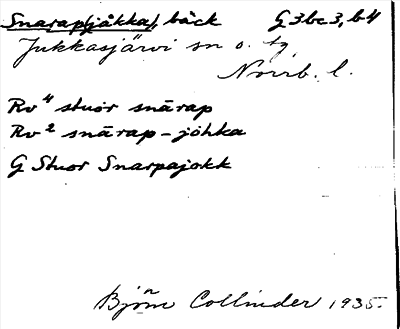 Snarap(jåkka), bäck G3bc3, b4
Jukkasjärvi sn o. tg
Norrb. l.
Rv⁴ stuor snārap
Rv² snārap-jòhka
G Stuor Snarpajokk
Björn Collinder 1935.